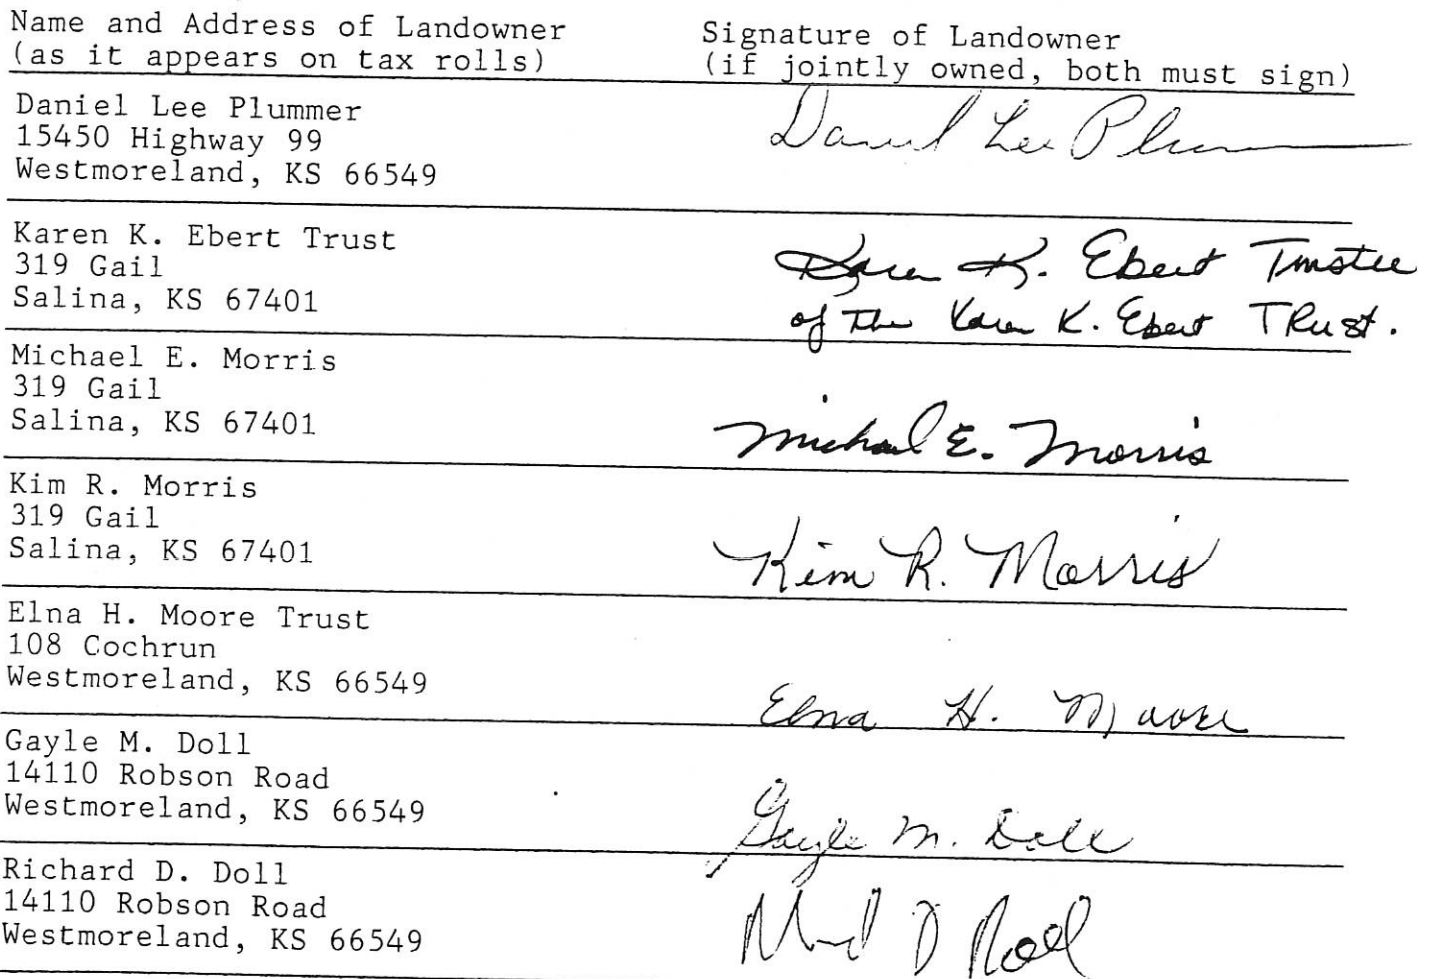 Name and Address of Landowner
(as it appears on tax rolls)
Signature of Landowner
(if jointly owned, both must sign)
Daniel Lee Plummer
15450 Highway 99
Westmoreland, KS 66549
Daniel Lee Plummer
Karen K. Ebert Trust
319 Gail
Salina, KS 67401
Karen K. Ebert Trustee
of The Karen K. Ebert TRust.
Michael E. Morris
319 Gail
Salina, KS 67401
Michael E. Morris
Kim R. Morris
319 Gail
Salina, KS 67401
Kim R. Morris
Elna H. Moore Trust
108 Cochrun
Westmoreland, KS 66549
Elna H. Moore
Gayle M. Doll
14110 Robson Road
Westmoreland, KS 66549
Gayle M. Doll
Richard D. Doll
14110 Robson Road
Westmoreland, KS 66549
D Doll